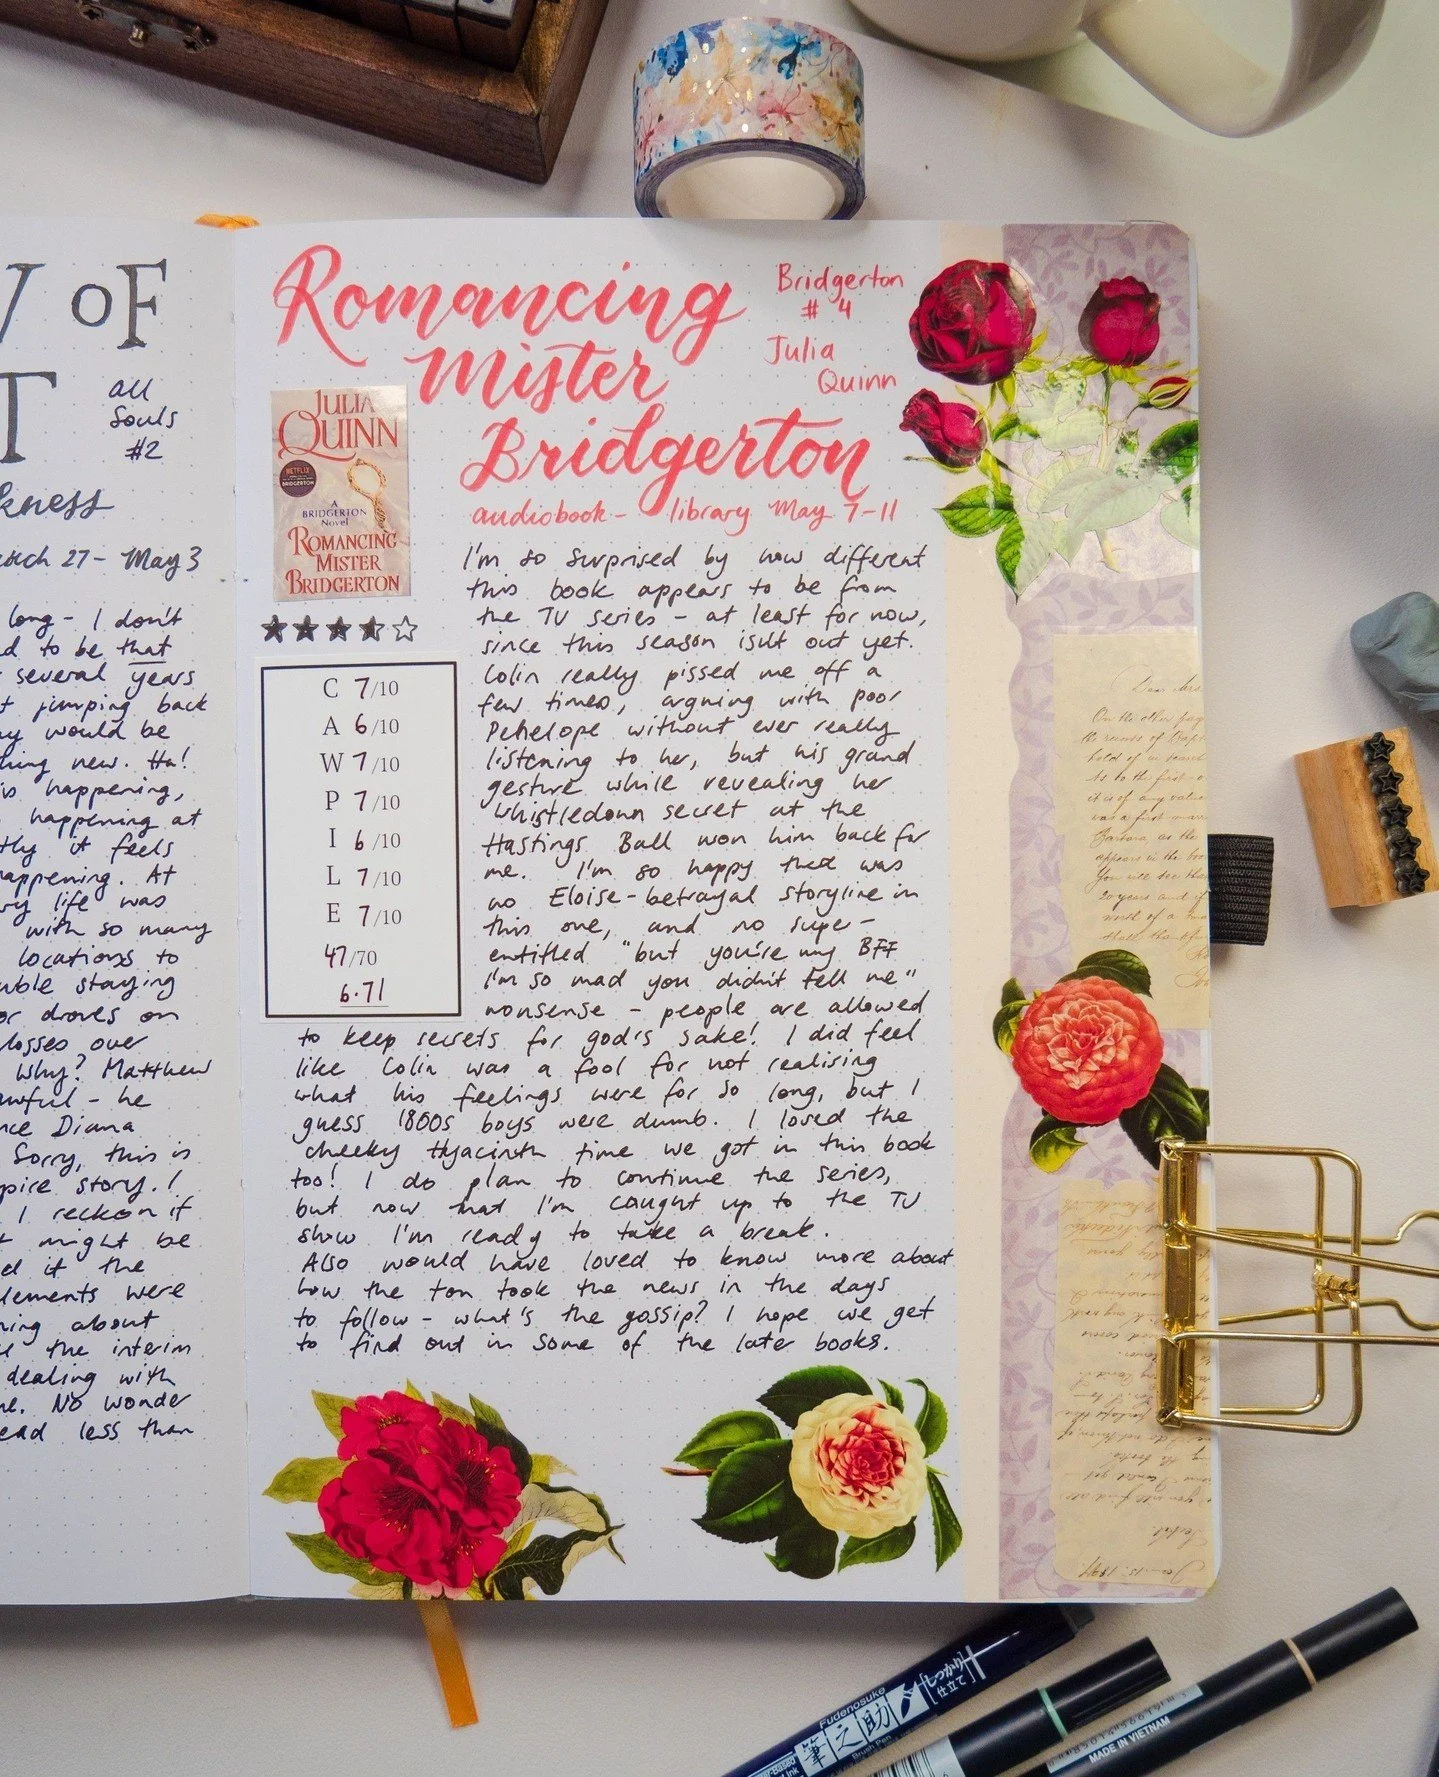 V OF
T
all
Souls
#2
kness
March 27 - May 3
long - I don't
d to be that
several years
t jumping back
y would be
hing new. Ha!
is happening,
happening at
tly it feels
happening. At
ry life was
with so many
locations to
uble staying
or droves on
losses over
Why? Matthew
awful - he
nce Diana
Sorry, this is
pire story. I
I reckon if
t might be
el it the
lements were
ning about
the interim
dealing with
me. No wonder
ead less than
Romancing
Mister
Bridgerton
Bridgerton
#4
Julia
Quinn
audiobook - library May 7-11
JULIA
QUINN
NETFLIX
BRIDGERTON
A
BRIDGERTON
Novel
ROMANCING
MISTER
BRIDGERTON
C 7/10
A 6/10
W 7/10
P 7/10
I 6/10
L 7/10
E 7/10
47/70
6.71
I'm so surprised by how different
this book appears to be from
the TV series - at least for now,
since this season isn't out yet.
Colin really pissed me off a
few times, arguing with poor
Penelope without ever really
listening to her, but his grand
gesture while revealing her
Whistledown secret at the
Hastings Ball won him back for
me. I'm so happy there was
no Eloise-betrayal storyline in
this one, and no super-
entitled "but you're my BFF
I'm so mad you didn't tell me"
nonsense - people are allowed
to keep secrets for god's sake! I did feel
like Colin was a fool for not realising
what his feelings were for so long, but I
guess 1800s boys were dumb. I loved the
cheeky Hyacinth time we got in this book
too! I do plan to continue the series,
but now that I'm caught up to the TV
show I'm ready to take a break.
Also would have loved to know more about
how the ton took the news in the days
to follow - what's the gossip? I hope we get
to find out in some of the later books.
On the other page
20 years and if
Fudenosuke
筆之助
Brush Pen
仕立て
MADE IN VIETNAM